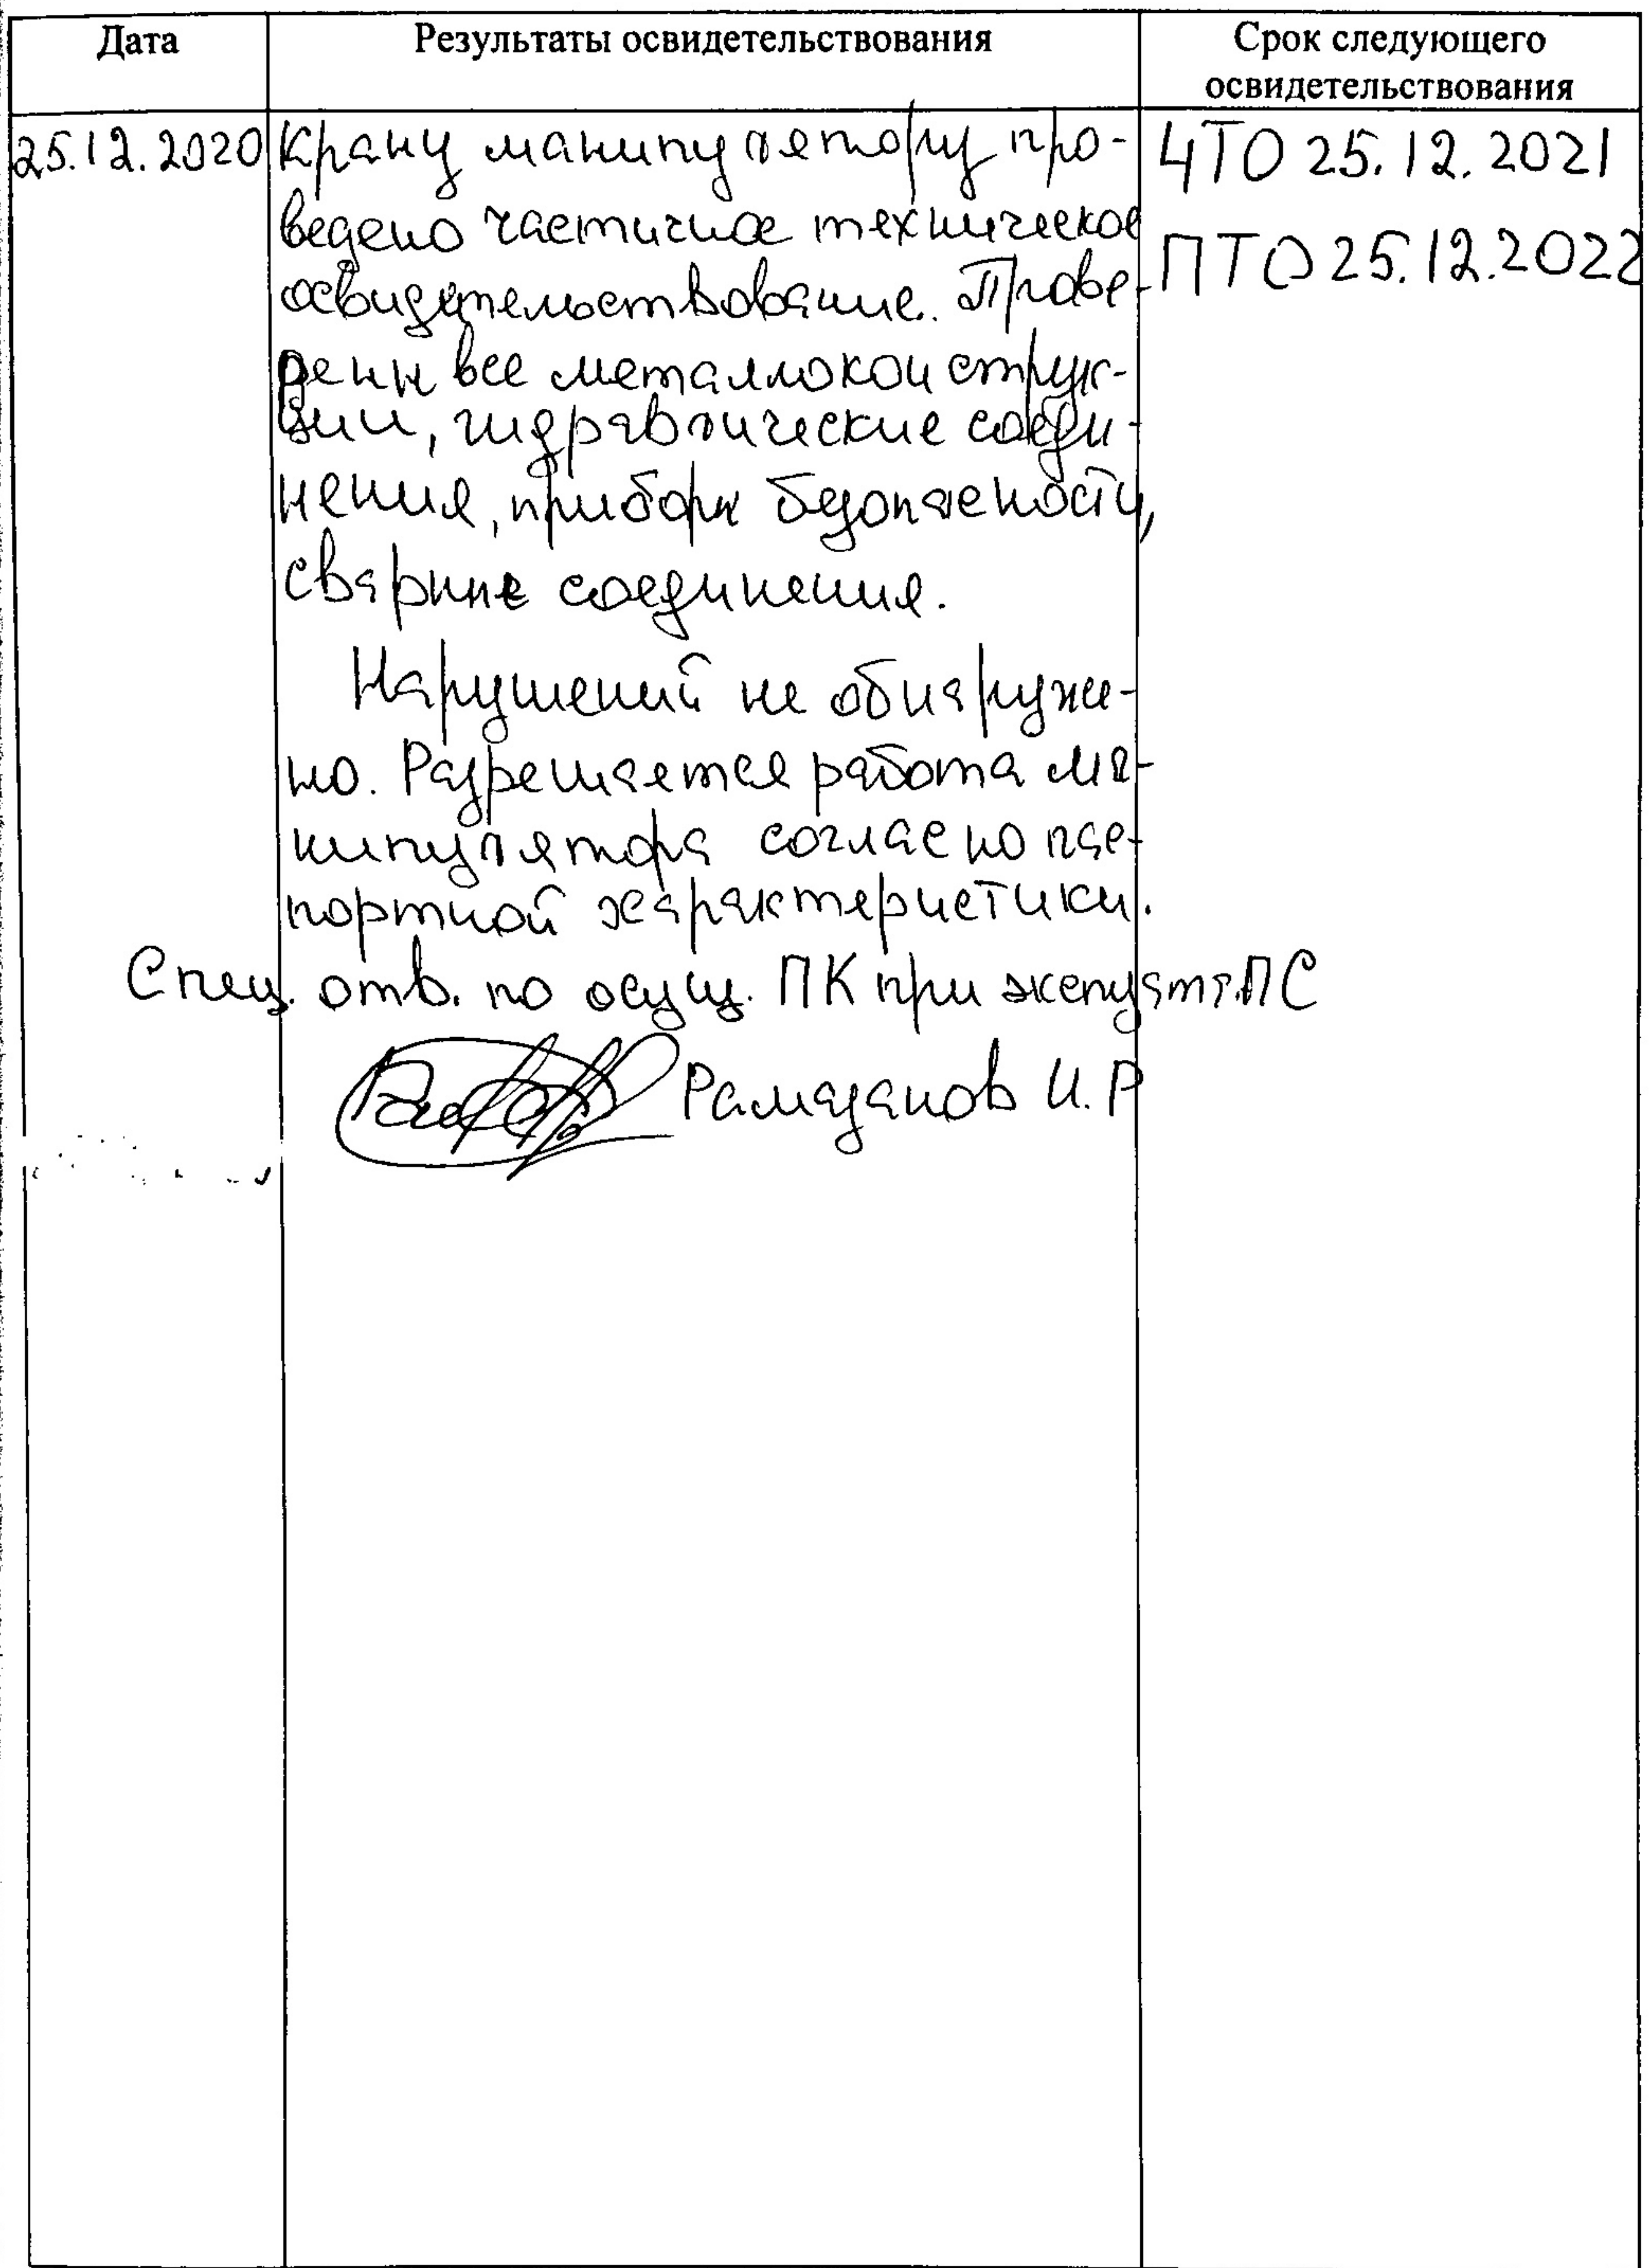 Дата Результаты освидетельствования Срок следующего
освидетельствования
25.12.2020 Крану манипулятору про- ЧТО 25.12.2021
ведено частичное техническое
освидетельствование. Прове- ПТО 25.12.2022
рены все металлоконструк-
ции, гидравлические соеди-
нения, приборы безопасности,
сварные соединения.
Нарушений не обнаруже-
но. Разрешается работа ма-
нипулятора согласно пас-
портной характеристики.
Спец. отв. по осущ. ПК при эксплуат. ПС
Рамазанов И.Р